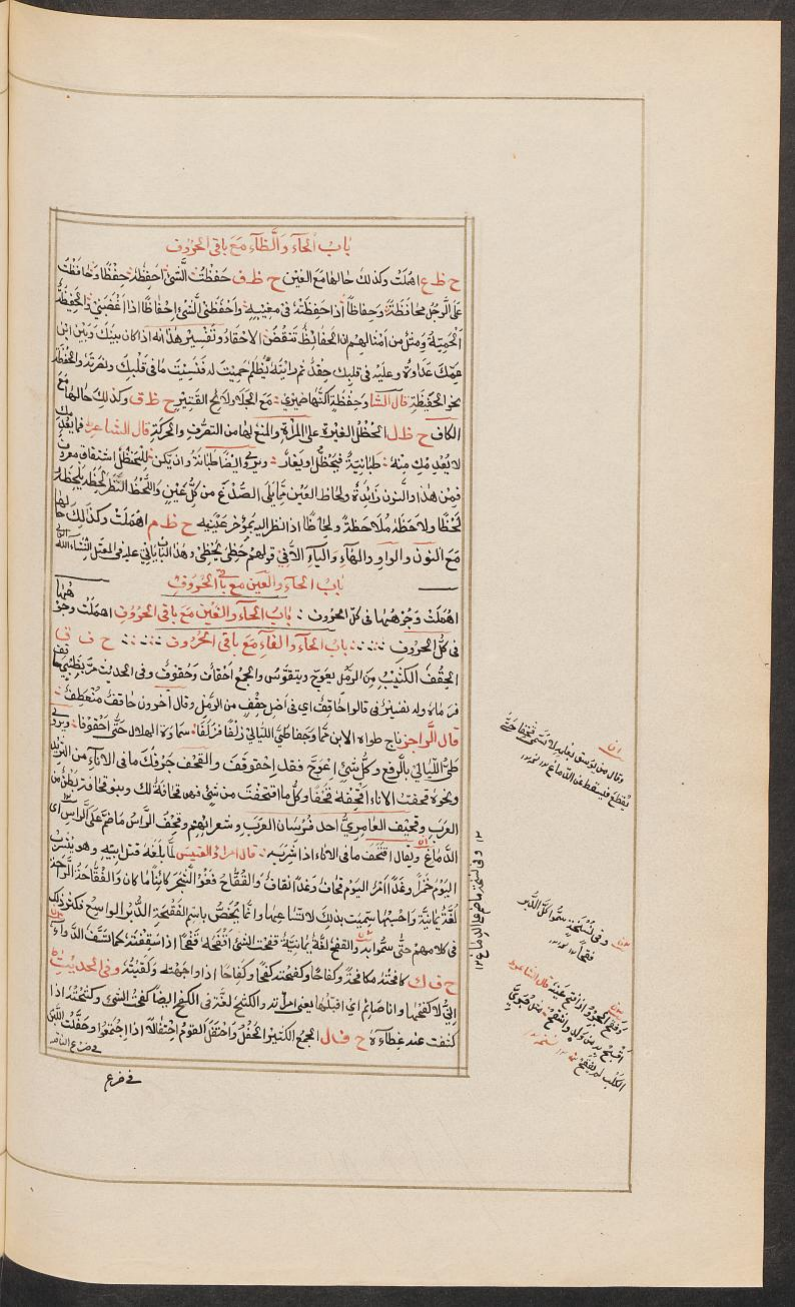 باب الحاء والظاء مع باقي الحروف
ح ظ ع اهملت وكذلك حالها مع الغين ح ظ ف حفظت الشئ احفظه حفظا وحافظت
على الرجل محافظة وحفاظا اذا حفظته في مغيبه واحفظني الشئ احفاظا اذا اغضبني والحفيظة
الحمية ومثل من امثالهم ان الحفائظ تنقض الاحقاد وتفسير هذا انه اذا كان بينك وبين ابن
عمك عداوة وعليه في قلبك حقد ثم رايته يظلم حميت له فنسيت ما في قلبك ونصرته والحفظة
نحو الحفيظة قال الشا وحفظة اكنها ضميري مع الجلا ولائح القتير ح ظ ق وكذلك حالها مع
الكاف ح ظ ل الحظل الغيرة على المراة والمنع لها من التصرف والحركة قال الشاعر فما يعدمك
لا يعدمك منه طبانية فيحظل او يغار ويروى ايضا طبانة وان يكن للحنظل اشتقاق معروف
فمن هذا والنون زائدة ولحاظ العين مما يلى الصدغ من كل عين واللحظ النظر لحظه يلحظه
لحظا ولاحظه ملاحظة ولحاظا اذا نظر اليه بمؤخر عينيه ح ظ م اهملت وكذلك حالها
مع النون والواو والهاء والياء الا في قولهم حظي يحظى وهذا الباب ياتي عليه في المعتل انشاء الله
باب الحاء والعين مع باقي الحروف
اهملت وجوههما في كل الحروف باب الحاء والغين مع باقي الحروف اهملت وجوههما
في كل الحروف باب الحاء والفاء مع باقي الحروف ح ف ق
الحقف الكثيب من الرمل يعوج ويتقوس والجمع احقاف وحقوف وفي الحديث مر بظبي حاقف
فرماه وله تفسيران قالوا حاقف اي في اصل حقف من الرمل وقال آخرون حاقف منعطف
قال الراجز ناج طواه الاين مما وجفا طي الليالي زلفا فزلفا سماوة الهلال حتى احقوقفا ويروى
طي الليالي بالرفع وكل شئ اعوج فقد احقوقف والقحف جرفك ما في الاناء من الثريد
ونحوه قحفت الاناء اقحفه قحفا وكل ما اقتحفت من شئ فهي قحافة لك وبنو قحافة بطن من
العرب وقحيف العامري احد فرسان العرب وشعرائهم وقحف الراس ما ضم على الراس اى
الدماغ ويقال اقتحف ما في الاناء اذا شربه قال امرؤ القيس لما بلغه قتل ابيه وهو يشرب
اليوم خمر وغدا امر اليوم قحاف وغدا نقاف والفقاح فغو الشجر كائنا ما كان والفقاحة الواحدة
لغة يمانية واحسبها سميت بذلك لاتساعها وانما يخص باسم الفقحة الدبر الواسع فكثر ذلك
في كلامهم حتى سموا به والقفح لغة يمانية قفحت الشئ اقفحه قفحا اذا سففته كما تسف الدواء
ح ف ك كافحته مكافحة وكفاحا وكفحته كفحا وكفاحا اذا واجهته ولقيته وفي الحديث
اني لاكفحها وانا صائم اي اقبلها يعني امراته والكثح لغة في الكفح ايضا كفح الشئ وكثحته اذا
كشفت عنه غطاءه ح ف ل الجمع الكثير الحفل واحتفل القوم احتفالا اذا اجتمعوا وحفلت اللبن
في ضرع الناقة
في ضرع
وقال من يوثق بعلمه لا تسمى قحفا حتى
يقطع فيسقط عن الدماغ
وفي نسخة ما ضم على الدماغ ١٢
وفي نسخة سموا كل الدبر
فقحا
وفقح الجرو اذا فتح عينه قال الشاعر
الكلب لم يفقح